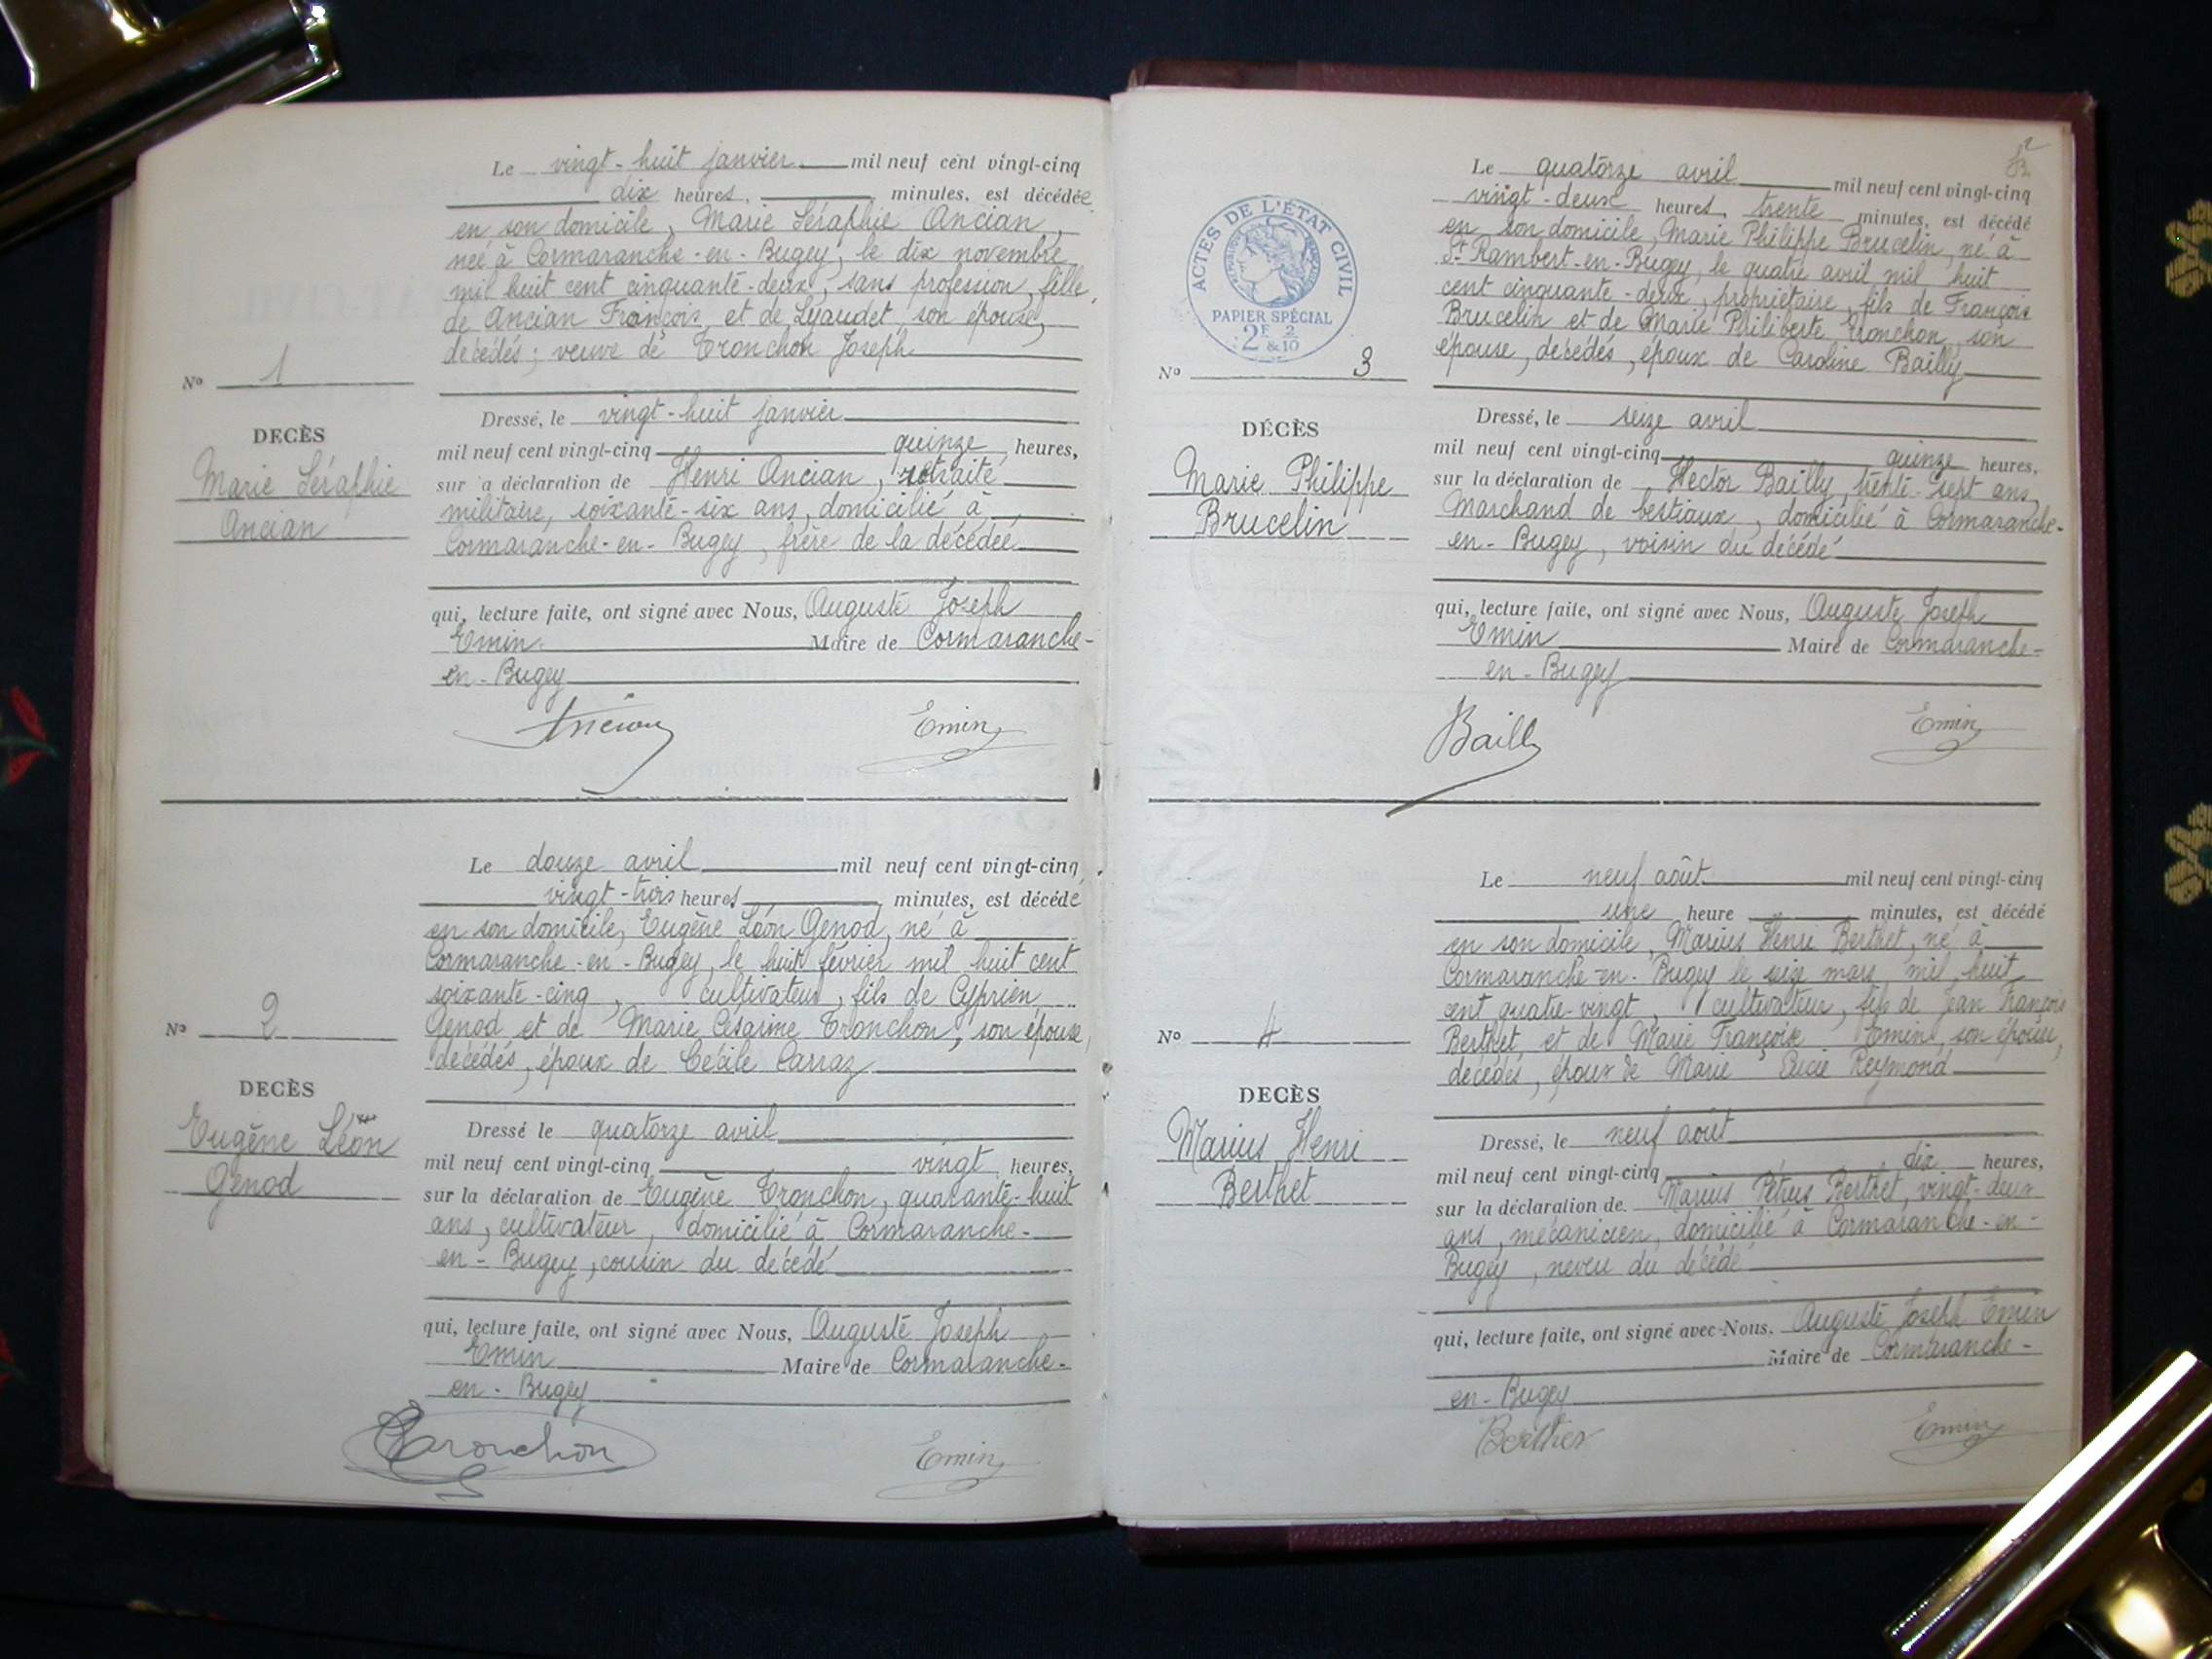 Le vingt-huit janvier mil neuf cent vingt-cinq
dix heures, minutes, est décédée
en son domicile, Marie Séraphie Ancian,
née à Cormaranche-en-Bugey, le dix novembre
mil huit cent cinquante-deux, sans profession, fille
de Ancian François et de Lyaudet, son épouse,
décédés; veuve de Tronchon Joseph
No 1
DECÈS
Marie Séraphie
Ancian
Dressé, le vingt-huit janvier
mil neuf cent vingt-cinq quinze heures,
sur la déclaration de Henri Ancian, retraité
militaire, soixante-six ans, domicilié à
Cormaranche-en-Bugey, frère de la décédée
qui, lecture faite, ont signé avec Nous, Auguste Joseph
Emin Maire de Cormaranche-
en-Bugey
Ancian Emin
Le douze avril mil neuf cent vingt-cinq
vingt-trois heures minutes, est décédé
en son domicile, Eugène Léon Genod, né à
Cormaranche-en-Bugey, le huit février mil huit cent
soixante-cinq, cultivateur, fils de Cyprien
Genod et de Marie Césarine Tronchon, son épouse,
décédés, époux de Cécile Carraz
No 2
DECÈS
Eugène Léon
Genod
Dressé le quatorze avril
mil neuf cent vingt-cinq vingt heures,
sur la déclaration de Eugène Tronchon, quarante-huit
ans, cultivateur, domicilié à Cormaranche-
en-Bugey, cousin du décédé
qui, lecture faite, ont signé avec Nous, Auguste Joseph
Emin Maire de Cormaranche-
en-Bugey
Tronchon Emin
2
ACTES DE L'ÉTAT CIVIL
RÉPUBLIQUE FRANÇAISE
PAPIER SPÉCIAL
2F & 2/10
Le quatorze avril mil neuf cent vingt-cinq
vingt-deux heures, trente minutes, est décédé
en son domicile, Marie Philippe Brucelin, né à
St Rambert-en-Bugey, le quatre avril mil huit
cent cinquante-deux, propriétaire, fils de François
Brucelin et de Marie Philiberte Tronchon, son
épouse, décédés, époux de Caroline Bailly
No 3
DÉCÈS
Marie Philippe
Brucelin
Dressé, le seize avril
mil neuf cent vingt-cinq quinze heures,
sur la déclaration de Hector Bailly, trente-sept ans,
Marchand de bestiaux, domicilié à Cormaranche-
en-Bugey, voisin du décédé
qui, lecture faite, ont signé avec Nous, Auguste Joseph
Emin Maire de Cormaranche-
en-Bugey
Bailly Emin
Le neuf août mil neuf cent vingt-cinq
une heure minutes, est décédé
en son domicile, Marius Henri Berthet, né à
Cormaranche-en-Bugey le seize mars mil huit
cent quatre-vingt, cultivateur, fils de Jean François
Berthet et de Marie Françoise Emin, son épouse,
décédés, époux de Marie Reymond
No 4
DECÈS
Marius Henri
Berthet
Dressé, le neuf août
mil neuf cent vingt-cinq dix heures,
sur la déclaration de Marius Pétrus Berthet, vingt-deux
ans, mécanicien, domicilié à Cormaranche-en-
Bugey, neveu du décédé
qui, lecture faite, ont signé avec Nous, Auguste Joseph Emin
Maire de Cormaranche-
en-Bugey
Berthet Emin